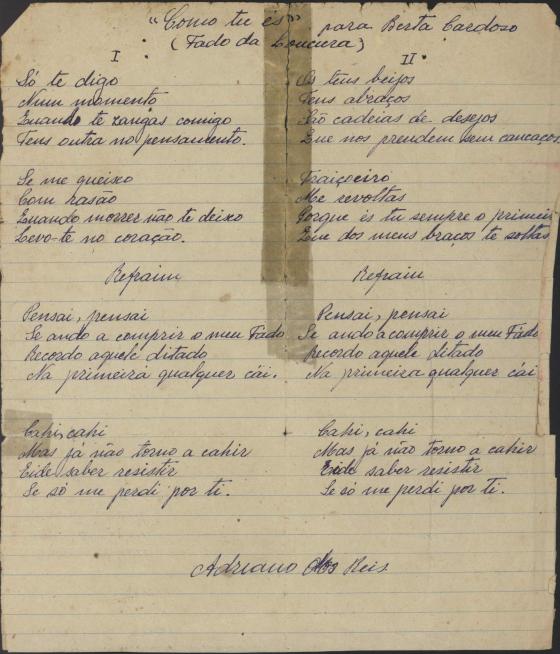 "Como tu és" para Berta Cardoso
(Fado da Loucura)
I
Só te digo
Num momento
Quando te zangas comigo
Tens outra no pensamento.
Se me queixo
Com rasão
Quando morrer não te deixo
Levo-te no coração.
Refrain
Pensai, pensai
Se ando a comprir o meu Fado
Recordo aquele ditado
Na primeira qualquer cái.
Cahi, cahi
Mas já não torno a cahir
Eide saber resistir
Se só me perdi por ti.
II
Os teus beijos
Teus abraços
São cadeias de desejos
Que nos prendem sem cancaços.
Traiçoeiro
Me revoltas
Porque és tu sempre o primeir
Que dos meus braços te soltas
Refrain
Pensai, pensai
Se ando a comprir o meu Fádo
Recordo aquele ditado
Na primeira qualquer cái
Cahi, cahi
Mas já não torno a cahir
Eide saber resistir
Se só me perdi por ti.
Adriano dos Reis